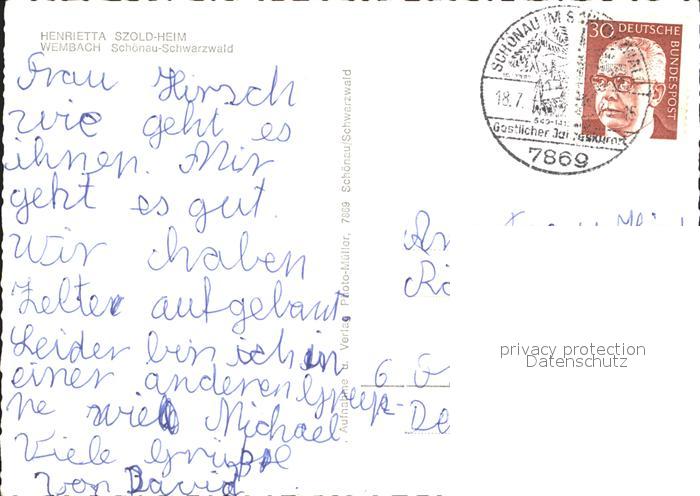 HENRIETTA SZOLD-HEIM
WEMBACH Schönau-Schwarzwald
Frau Hirsch
wie geht es
ihnen. Mir
geht es gut.
Wir haben
Zelter aufgebaut.
Leider bin ich in
einer anderen Grupp-
ne wie Michael
Viele Grüße
von David
Aufnahme u. Verlag Photo-Müller, 7869 Schönau/Schwarzwald
SCHÖNAU IM
18.7.
Gastlicher
7869
30 DEUTSCHE
BUNDESPOST
An
6 G
De
privacy protection
Datenschutz